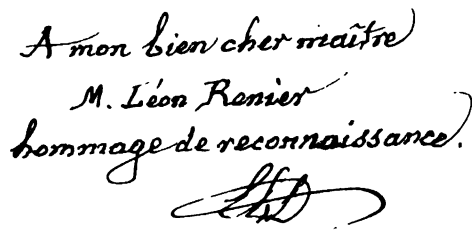 A mon bien cher maître
M. Léon Renier
hommage de reconnaissance.